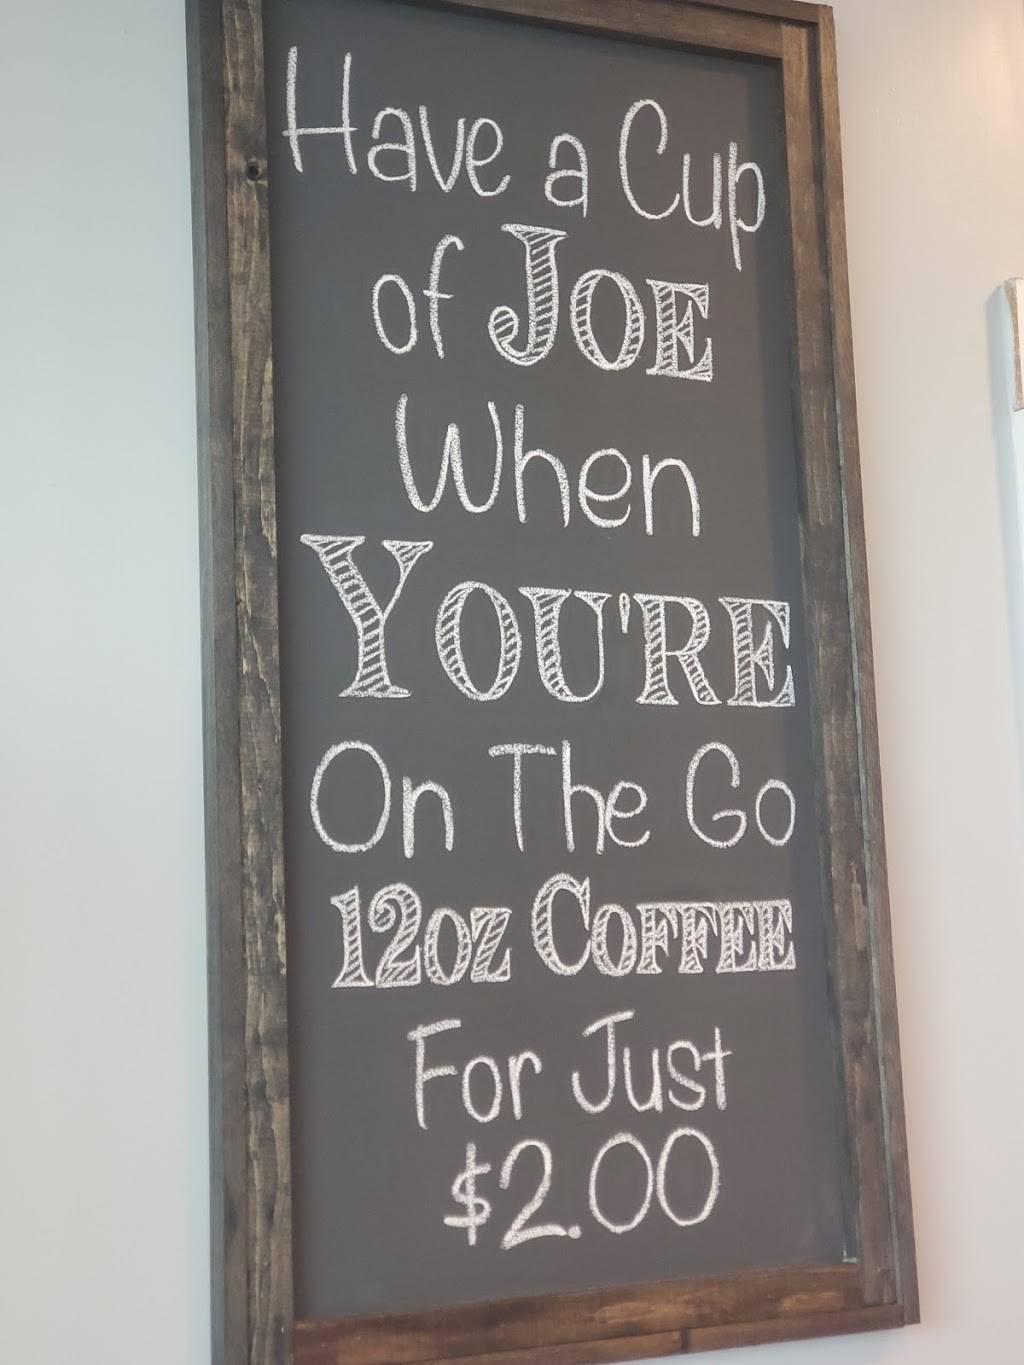 Have a Cup
of JOE
When
YOU'RE
On The Go
12OZ COFFEE
For Just
$2.00